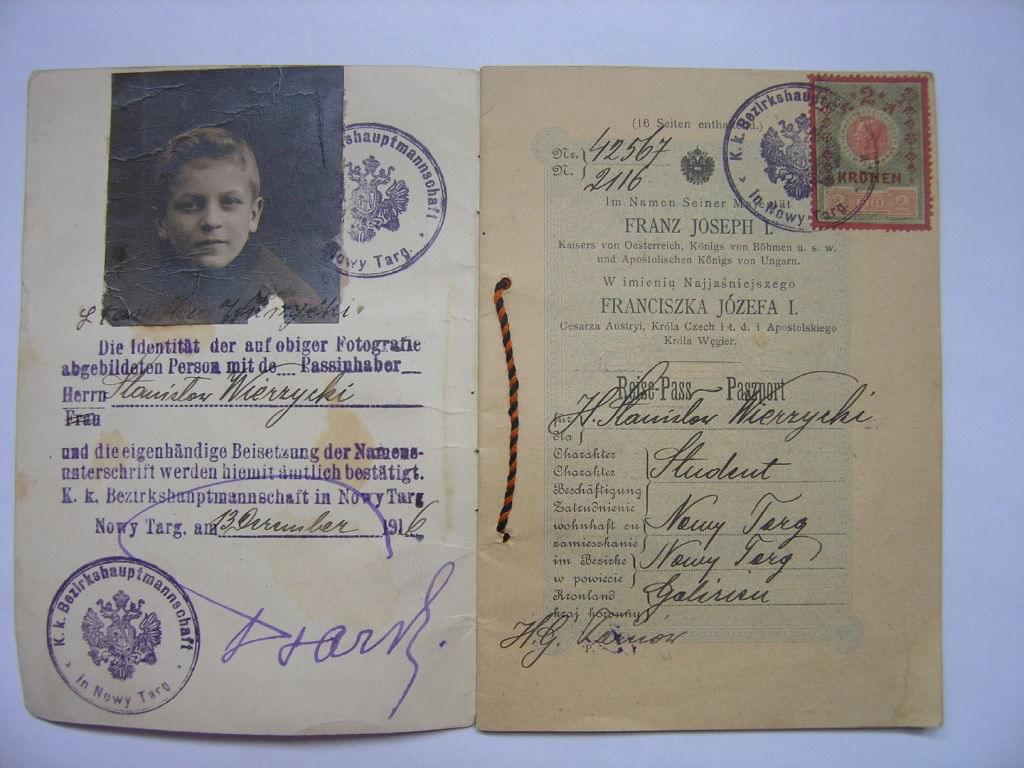 K. k. Bezirkshauptmannschaft
in Nowy Targ.
Die Identität der auf obiger Fotografie
abgebildeten Person mit de Passinhaber
Herrn Stanislav Wierzycki
Frau
und die eigenhändige Beisetzung der Namens-
unterschrift werden hiemit ämtlich bestätigt.
K. k. Bezirkshauptmannschaft in Nowy Targ
Nowy Targ, am 13 December 1916
K. k. Bezirkshauptmannschaft
in Nowy Targ
(16 Seiten enthaltend.)
Nr. 42567
N. 2116
K. k. Bezirkshau
in Nowy Targ.
2
KRONEN
2
Im Namen Seiner Majestät
FRANZ JOSEPH I.
Kaisers von Oesterreich, Königs von Böhmen u. s. w.
und Apostolischen Königs von Ungarn.
W imieniu Najjaśniejszego
FRANCISZKA JÓZEFA I.
Cesarza Austryi, Króla Czech i t. d. i Apostolskiego
Króla Węgier.
Reise-Pass — Paszport
für H. Stanislav Wierzycki
dla
Charakter
Charakter Student
Beschäftigung
Zatrudnienie
wohnhaft zu Nowy Targ
zamieszkanie
im Bezirke Nowy Targ
w powiecie
Kronland Galizien
kraj koronny